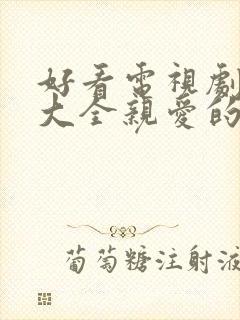 好看電視劇
大全親愛的
葡萄糖注射液